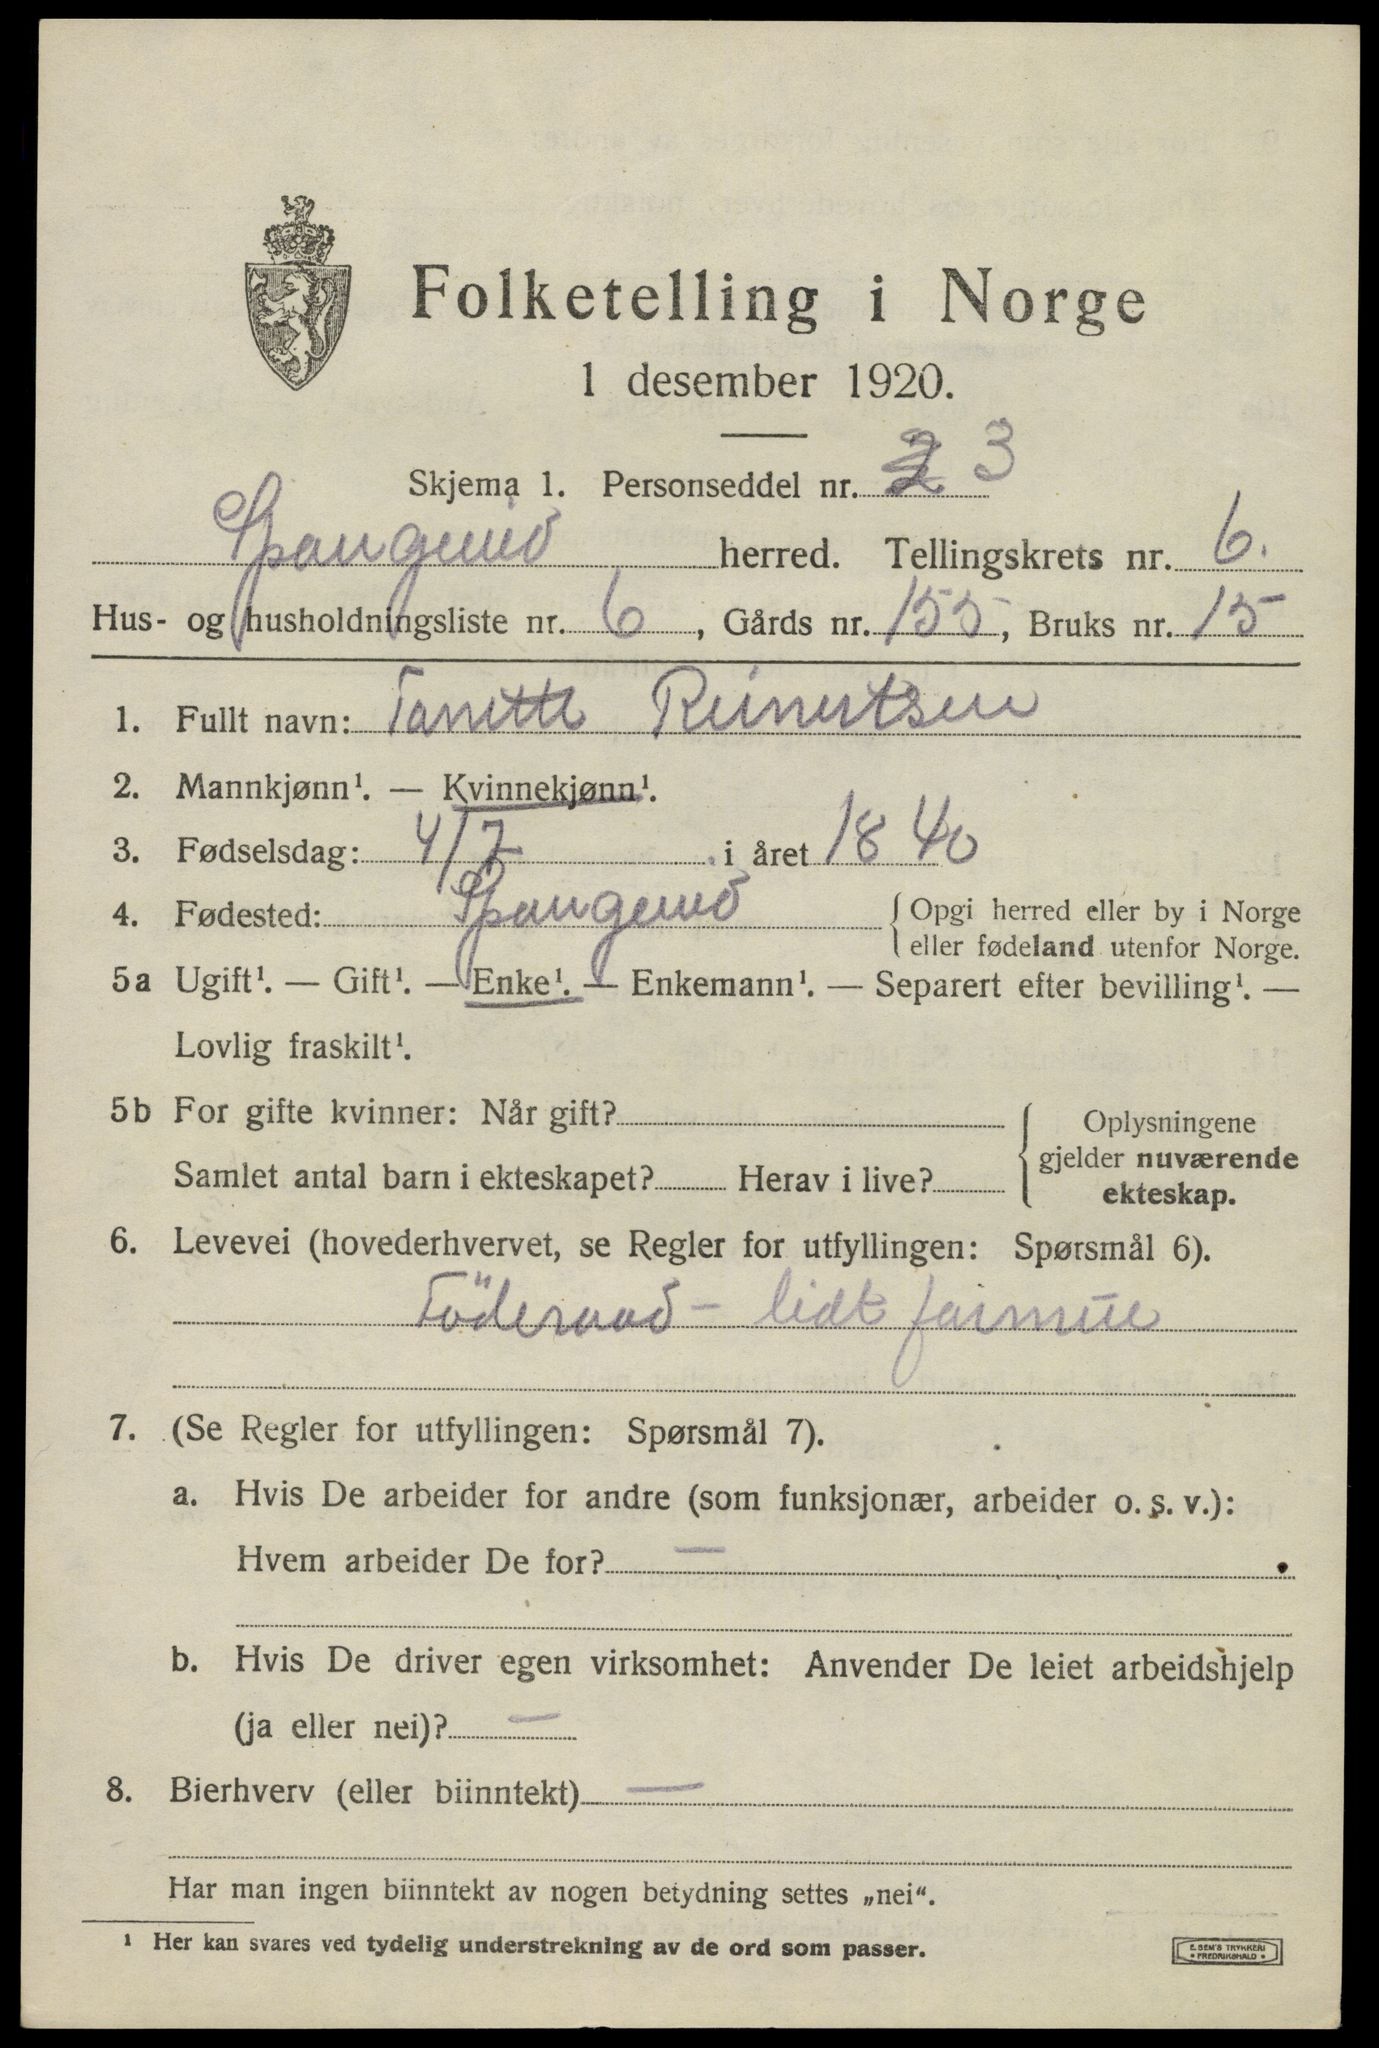 Folketelling i Norge
1 desember 1920.
Skjema 1. Personseddel nr. 3
Spangereid herred. Tellingskrets nr. 6.
Hus- og husholdningsliste nr. 6, Gårds nr. 155, Bruks nr. 15
1. Fullt navn: Tanette Reinertsen
2. Mannkjønn¹. — Kvinnekjønn¹.
3. Fødselsdag: 4/7 i året 1840
4. Fødested: Spangereid {Opgi herred eller by i Norge
eller fødeland utenfor Norge.
5a Ugift¹. — Gift¹. — Enke¹. — Enkemann¹. — Separert efter bevilling¹. —
Lovlig fraskilt¹.
5b For gifte kvinner: Når gift? { Oplysningene
gjelder nuværende
Samlet antal barn i ekteskapet? Herav i live?
ekteskap.
6. Levevei (hovederhvervet, se Regler for utfyllingen: Spørsmål 6).
Föderaad – lidt formue
7. (Se Regler for utfyllingen: Spørsmål 7).
a. Hvis De arbeider for andre (som funksjonær, arbeider o. s. v.):
Hvem arbeider De for? —
b. Hvis De driver egen virksomhet: Anvender De leiet arbeidshjelp
(ja eller nei)? —
8. Bierhverv (eller biinntekt) —
Har man ingen biinntekt av nogen betydning settes „nei“.
¹ Her kan svares ved tydelig understrekning av de ord som passer.
E. SEM'S TRYKKERI
• FREDRIKSHALD •